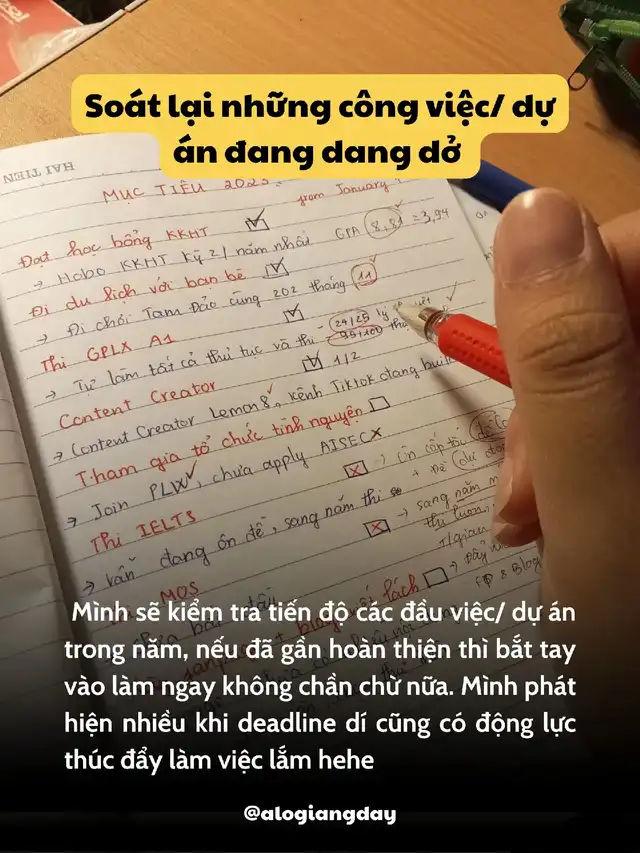 Soát lại những công việc/ dự
án đang dang dở
HAI TIEN
MỤC TIÊU 2023
from January
Đạt học bổng KKHT
→ Hobo KKHT kỳ 2/ năm nhất GPA 8,81 = 3,94
Đi du lịch với bạn bè
→ Đi chơi Tam Đảo cùng 202 tháng 11
Thi GPLX A1
→ Tự làm tất cả thủ tục và thi - 24/25 lý
95/100
Content Creator 1/2
→ Content Creator Lemon8, kênh Tiktok đang build
Tham gia tổ chức tình nguyện
→ Join PLW, chưa apply AISEC
Thi IELTS
→ vẫn đang ôn đề, sang năm thi
MOS
Mình sẽ kiểm tra tiến độ các đầu việc/ dự án
trong năm, nếu đã gần hoàn thiện thì bắt tay
vào làm ngay không chần chừ nữa. Mình phát
hiện nhiều khi deadline dí cũng có động lực
thúc đẩy làm việc lắm hehe
@alogiangday